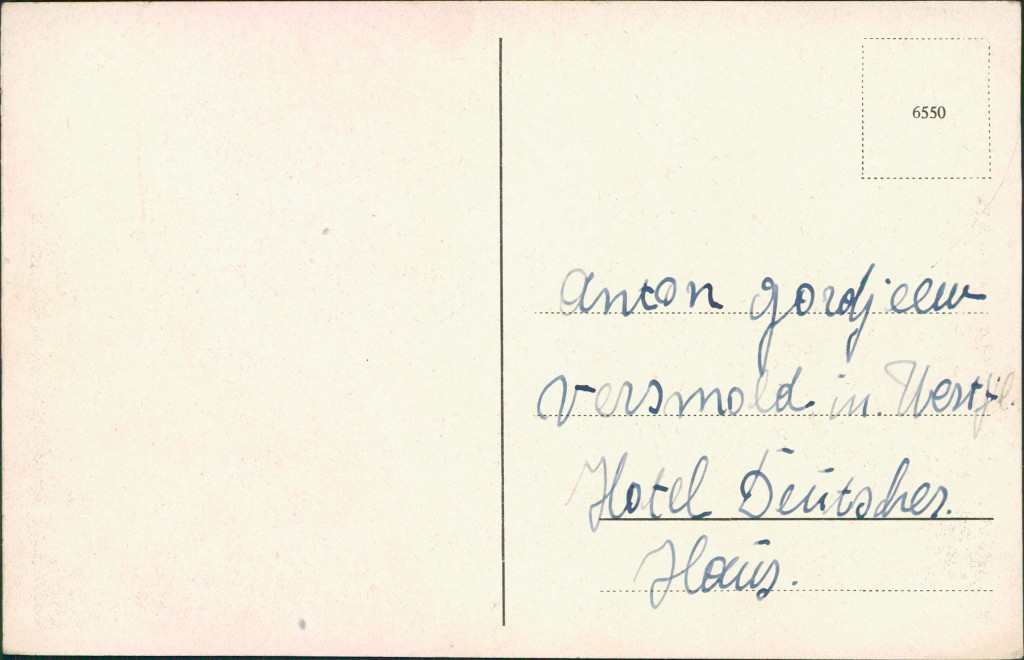 6550
Anton Gordjeew
Versmold in Westfl.
Hotel Deutsches.
Haus.